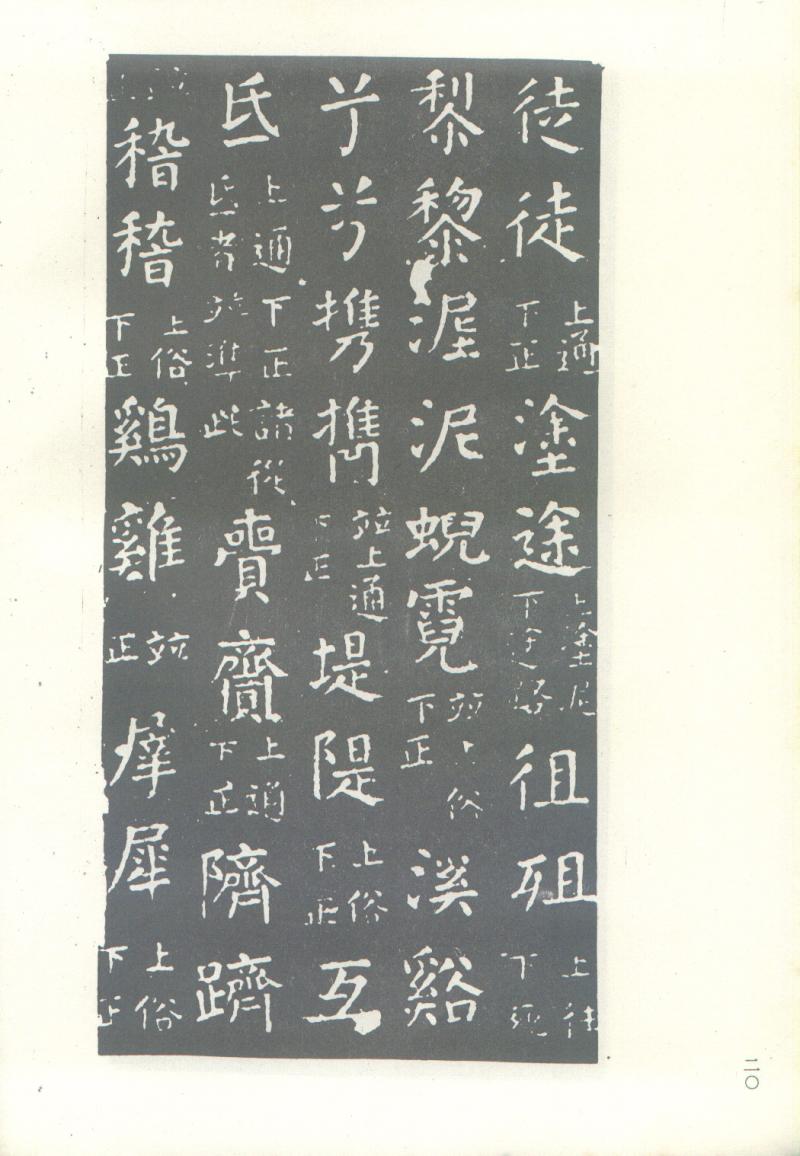 徒徒上通下正塗途上塗泥下途路徂殂上往下死
黎黎泥泥蜺霓並上俗下正溪谿
兮兮携㩗並上通下正堤隄上俗下正互
氐上通下正諸從氐者並準此賷齎上通下正隮躋
並正稽稽上俗下正鷄雞並正犀犀上俗下正
二〇